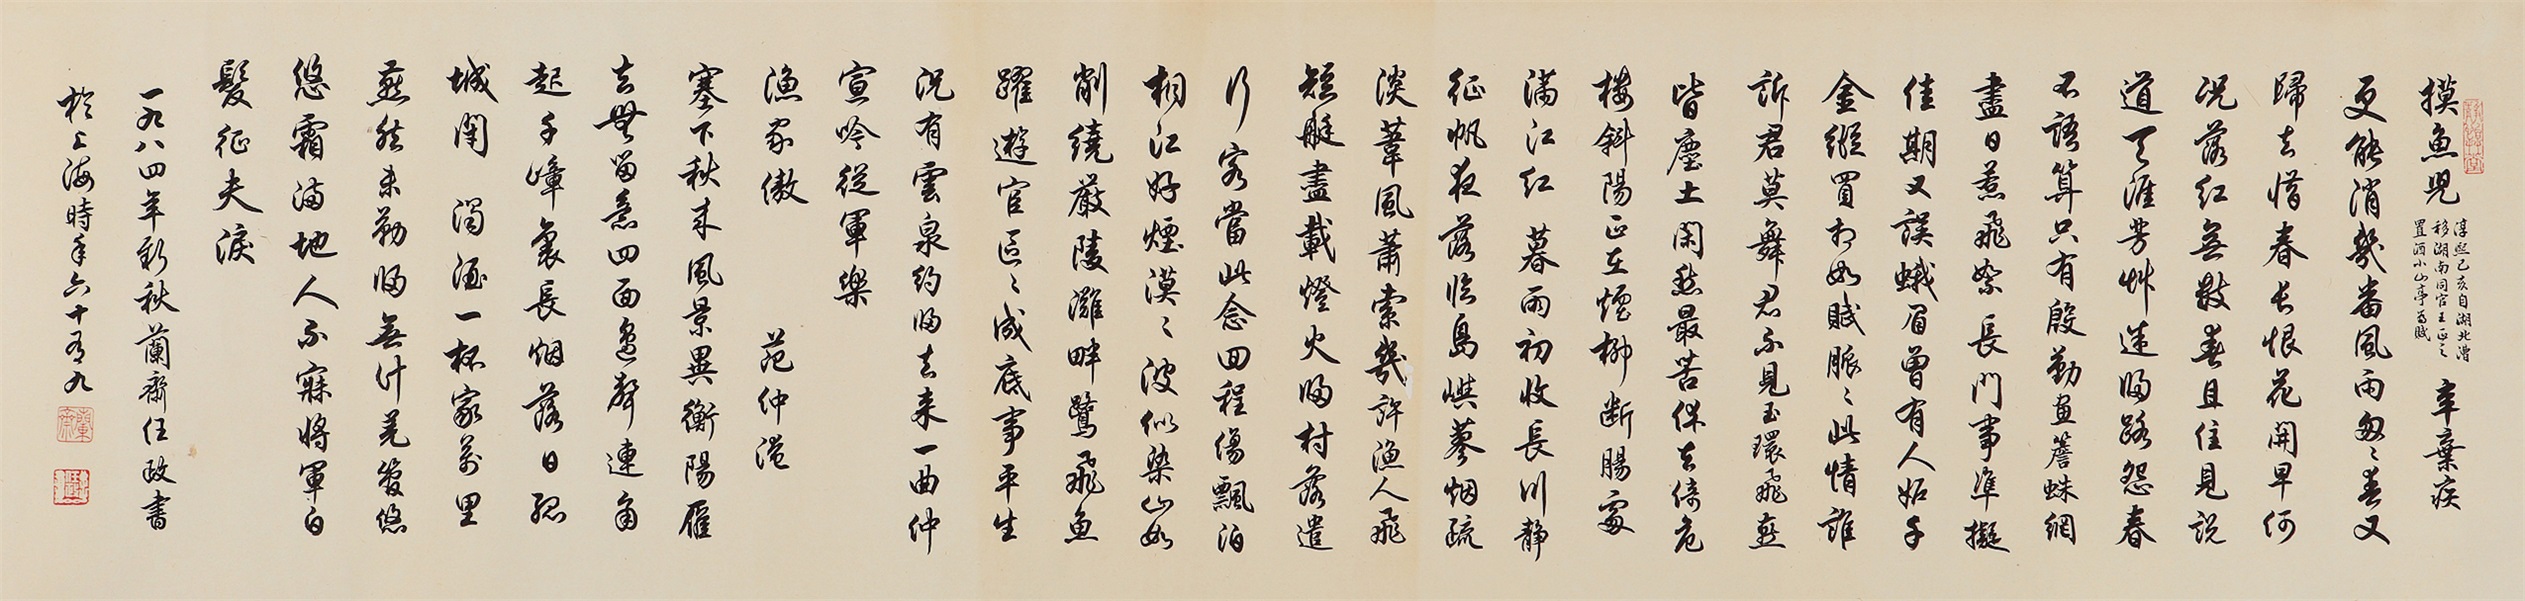 摸魚兒
淳熙己亥自湖北漕
移湖南同官王正之
置酒小山亭為賦
辛棄疾
更能消幾番風雨匆〻春又
歸去惜春長恨花開早何
況落紅無數春且住見說
道天涯芳艸迷歸路怨春
不語算只有殷勤畫簷蛛網
盡日惹飛絮長門事準擬
佳期又誤蛾眉曾有人妒千
金縱買相如賦脈〻此情誰
訴君莫舞君不見玉環飛燕
皆塵土閑愁最苦休去倚危
樓斜陽正在煙柳斷腸處
滿江紅 暮雨初收長川靜
征帆夜落臨島嶼蓼烟疏
淡葦風蕭索幾許漁人飛
短艇盡載燈火歸村落遣
行客當此念回程傷飄泊
桐江好煙漠〻波似染山如
削繞嚴陵灘畔鷺飛魚
躍遊宦區〻成底事平生
況有雲泉約歸去來一曲仲
宣吟從軍樂
漁家傲 范仲淹
塞下秋來風景異衡陽雁
去無留意四面邊聲連角
起千嶂裏長烟落日孤
城閉 濁酒一杯家萬里
燕然未勒歸無計羌管悠
悠霜滿地人不寐將軍白
髮征夫淚
一九八四年新秋蘭齋任政書
於上海時年六十有九
蘭齋